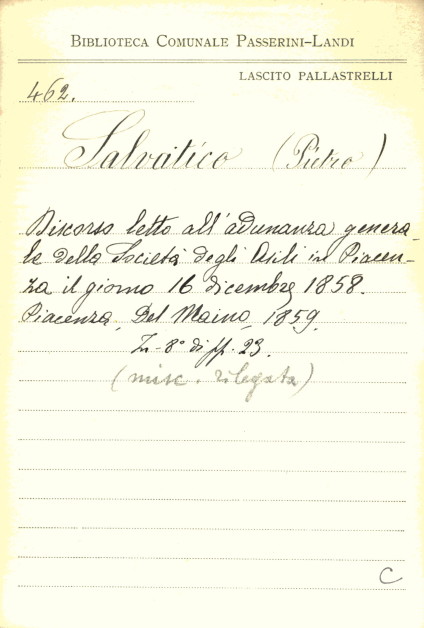 BIBLIOTECA COMUNALE PASSERINI-LANDI
LASCITO PALLASTRELLI
462.
Salvatico (Pietro)
Discorso letto all'adunanza genera-
le della Società degli Asili in Piacen-
za il giorno 16 dicembre 1858.
Piacenza, Del Maino, 1859.
In-8° di pp. 23.
(misc. rilegata)
C